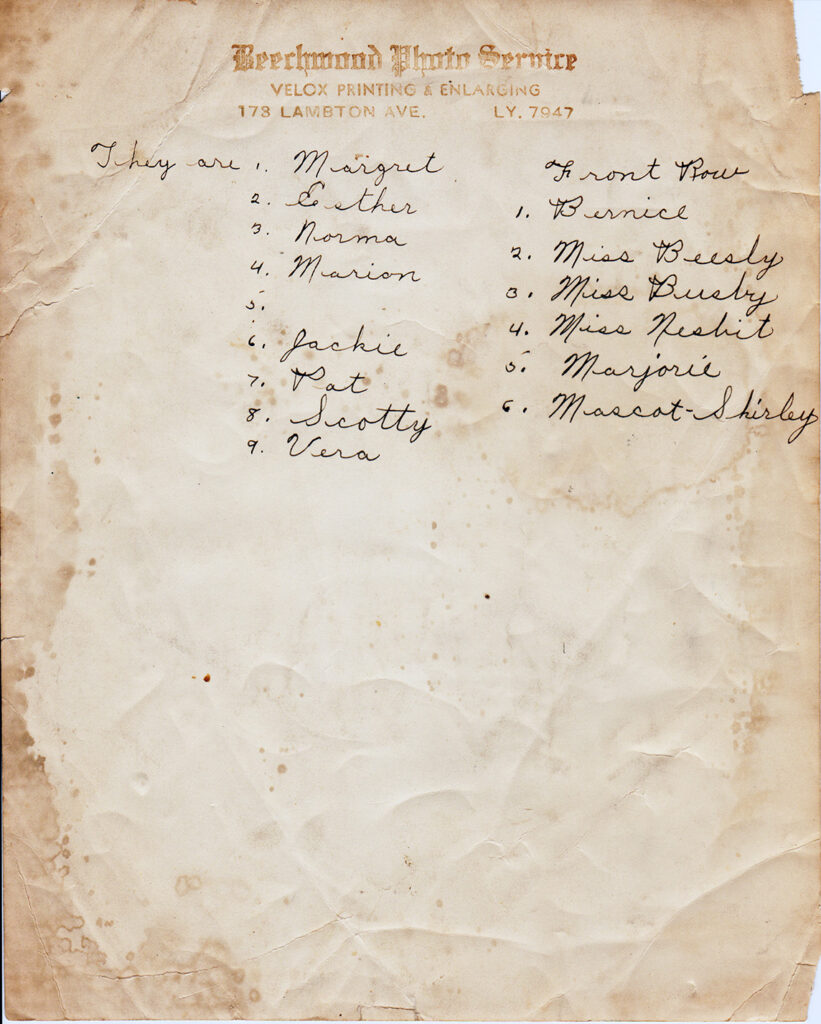 Beechwood Photo Service
VELOX PRINTING & ENLARGING
173 LAMBTON AVE. LY. 7947
They are 1. Margret
2. Esther
3. Norma
4. Marion
5.
6. Jackie
7. Pat
8. Scotty
9. Vera
Front Row
1. Bernice
2. Miss Beesly
3. Miss Busby
4. Miss Nesbit
5. Marjorie
6. Mascot-Shirley